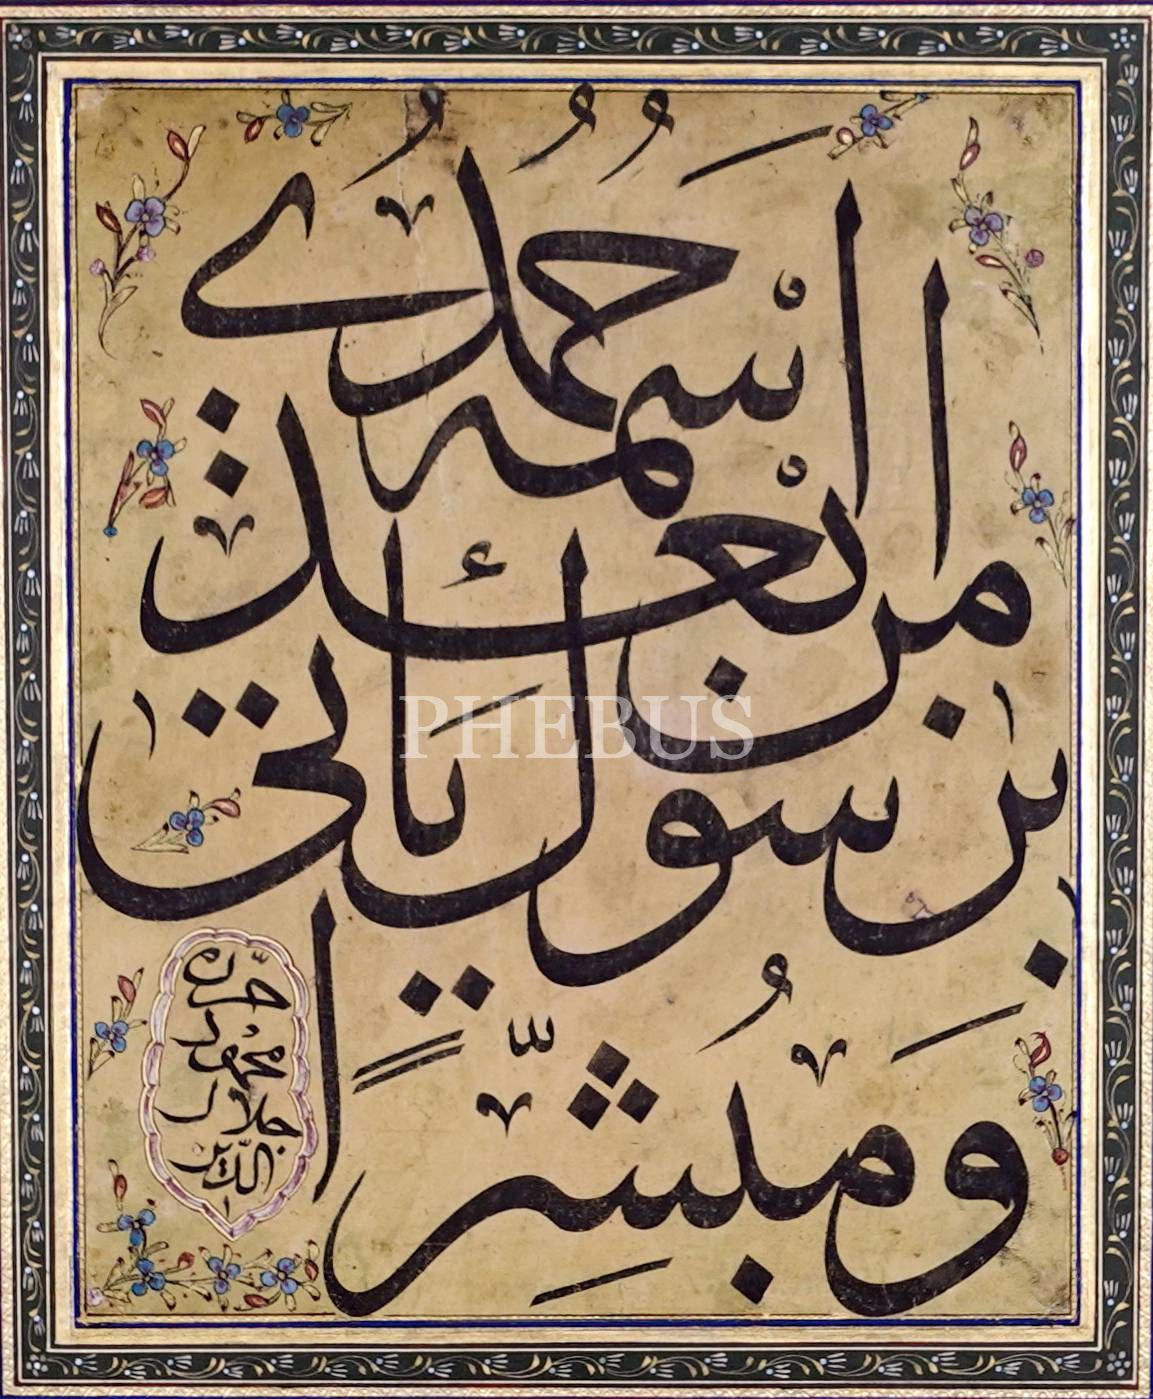 وَمُبَشِّرًا
بِرَسُولٍ يَأْتِى
مِنْ بَعْدِى
اسْمُهُ اَحْمَدُ
حرّره
محمود
جلال
الدين
PHEBUS